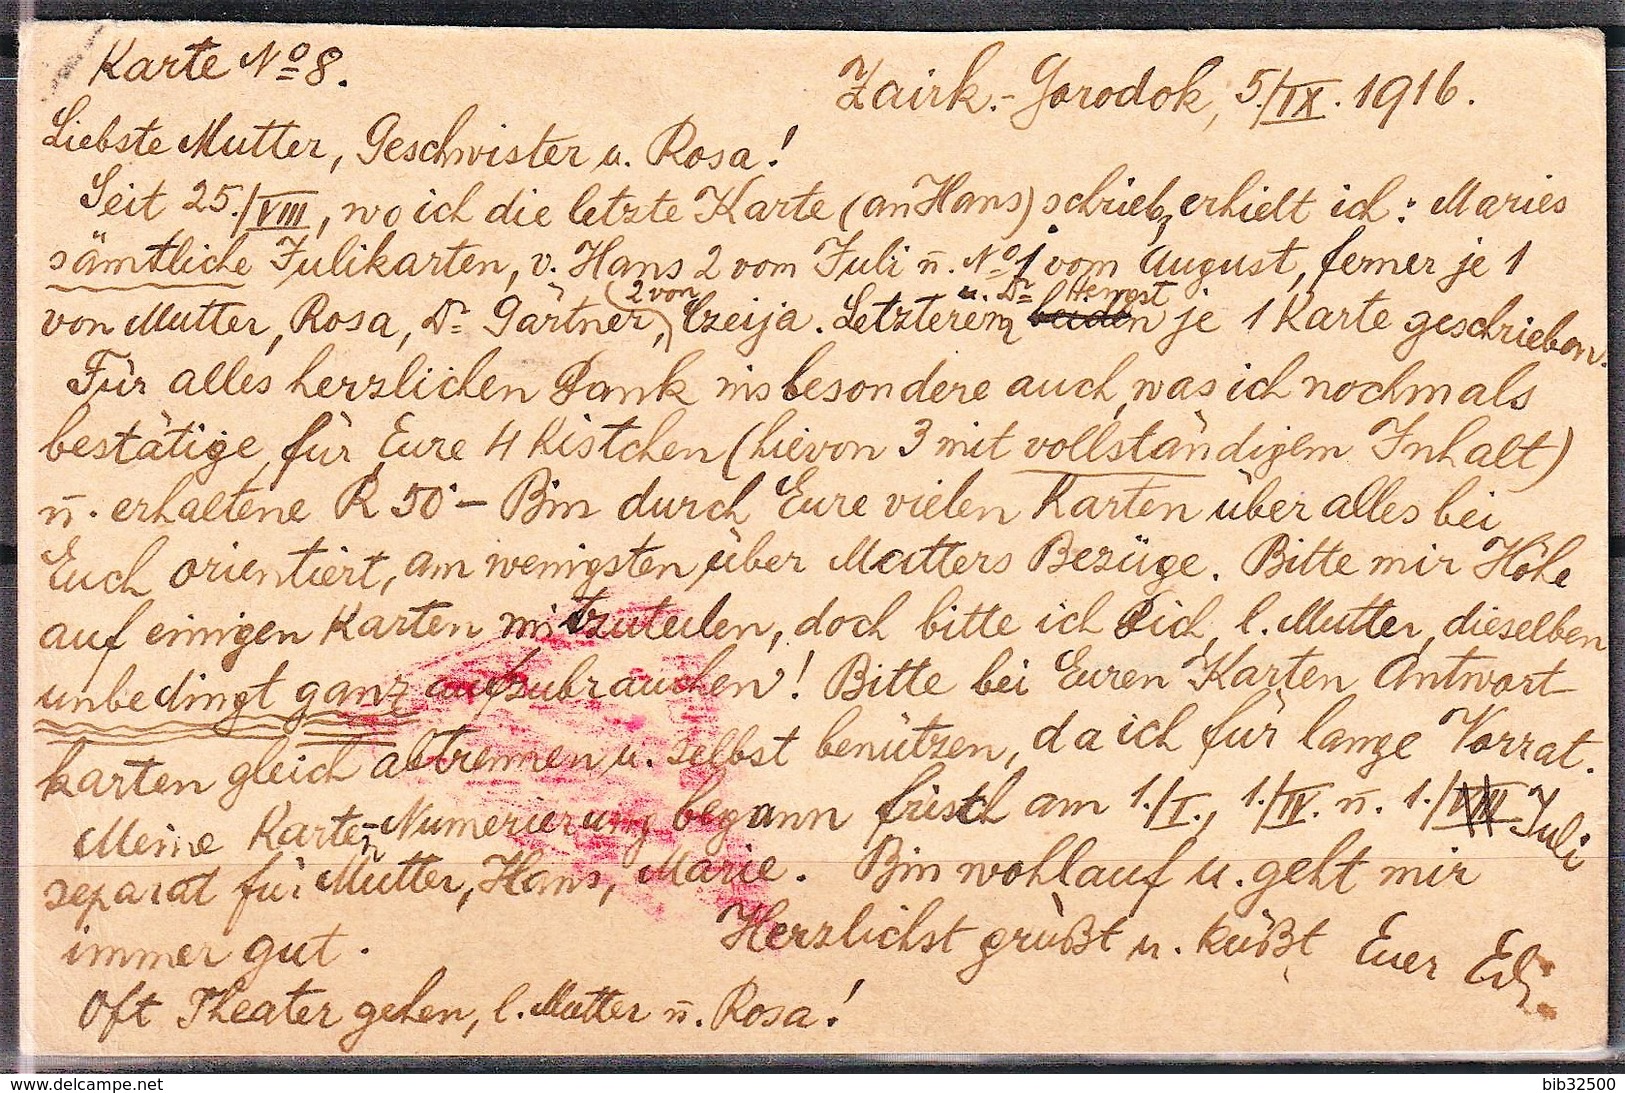 Karte No 8.
Zairk.-Gorodok, 5./IX. 1916.
Liebste Mutter, Geschwister u. Rosa!
Seit 25./VIII, wo ich die letzte Karte (an Hans) schrieb, erhielt ich: Maries
sämtliche Julikarten, v. Hans 2 vom Juli u. No 1 vom August, ferner je 1
von Mutter, Rosa, Dr Gärtner, (2 von) Czeija. Letzterem u. Dr Hengst je 1 Karte geschrieben.
Für alles herzlichen Dank insbesondere auch, was ich nochmals
bestätige, für Eure 4 Kistchen (hievon 3 mit vollständigem Inhalt)
u. erhaltene R 50·– Bin durch Eure vielen Karten über alles bei
Euch orientiert, am wenigsten über Mutters Bezüge. Bitte mir Höhe
auf einigen Karten mitzuteilen, doch bitte ich Dich, l. Mutter, dieselben
unbedingt ganz aufzubrauchen! Bitte bei Euren Karten Antwort-
karten gleich abtrennen u. selbst benützen, da ich für lange Vorrat.
Meine Karten-Numerierung begann frisch am 1./I., 1./IV. u. 1./VII Juli
separat für Mutter, Hans, Marie. Bin wohlauf u. geht mir
immer gut. Herzlichst grüßt u. küßt Euer Ed.
Oft Theater gehen, l. Mutter u. Rosa!
delcampe.net
bib32500